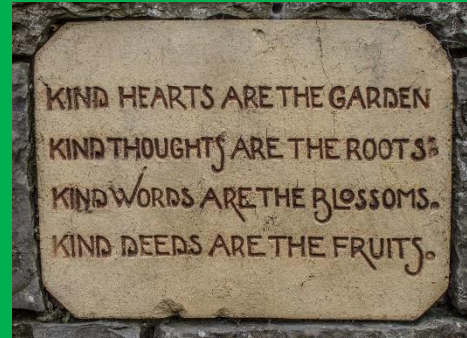 KIND HEARTS ARE THE GARDEN
KIND THOUGHTS ARE THE ROOTS:
KIND WORDS ARE THE BLOSSOMS.
KIND DEEDS ARE THE FRUITS.